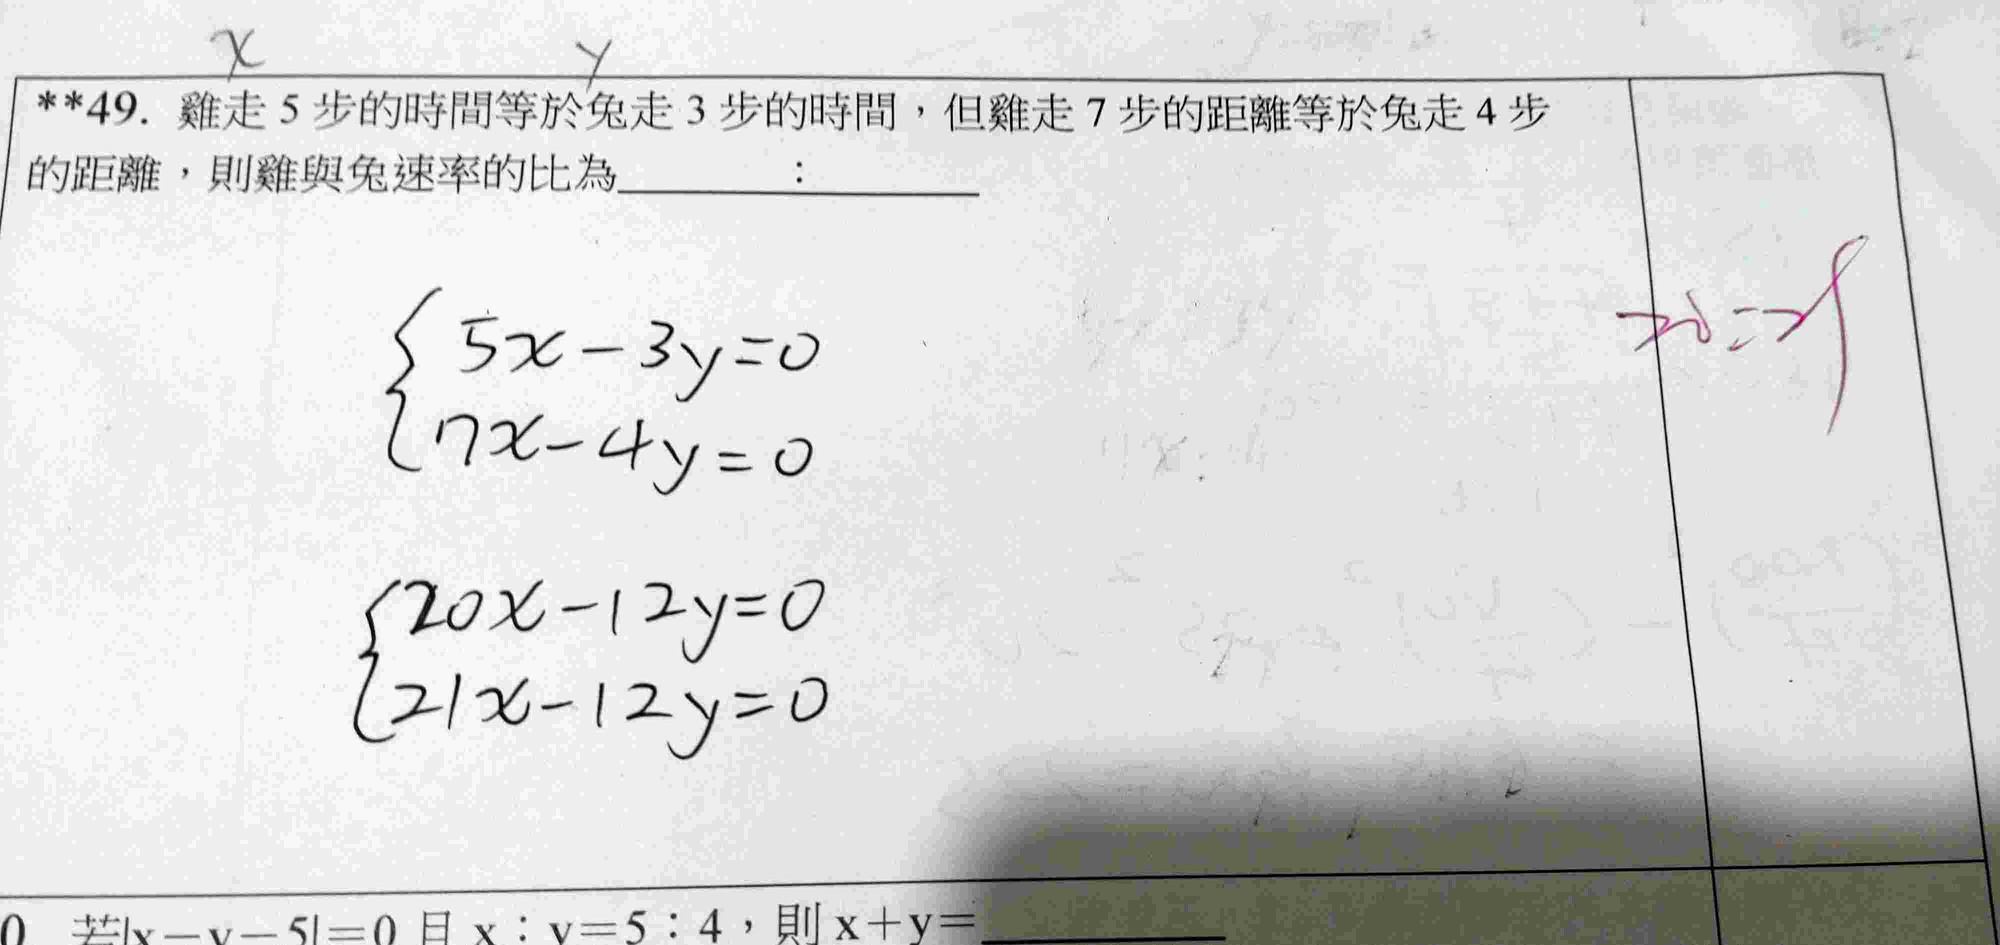 x y
**49. 雞走 5 步的時間等於兔走 3 步的時間，但雞走 7 步的距離等於兔走 4 步
的距離，則雞與兔速率的比為＿＿＿＿：＿＿＿＿
5x-3y=0
7x-4y=0
20x-12y=0
21x-12y=0
0 若|x－y－5|＝0 且 x：y＝5：4，則 x＋y＝＿＿＿＿